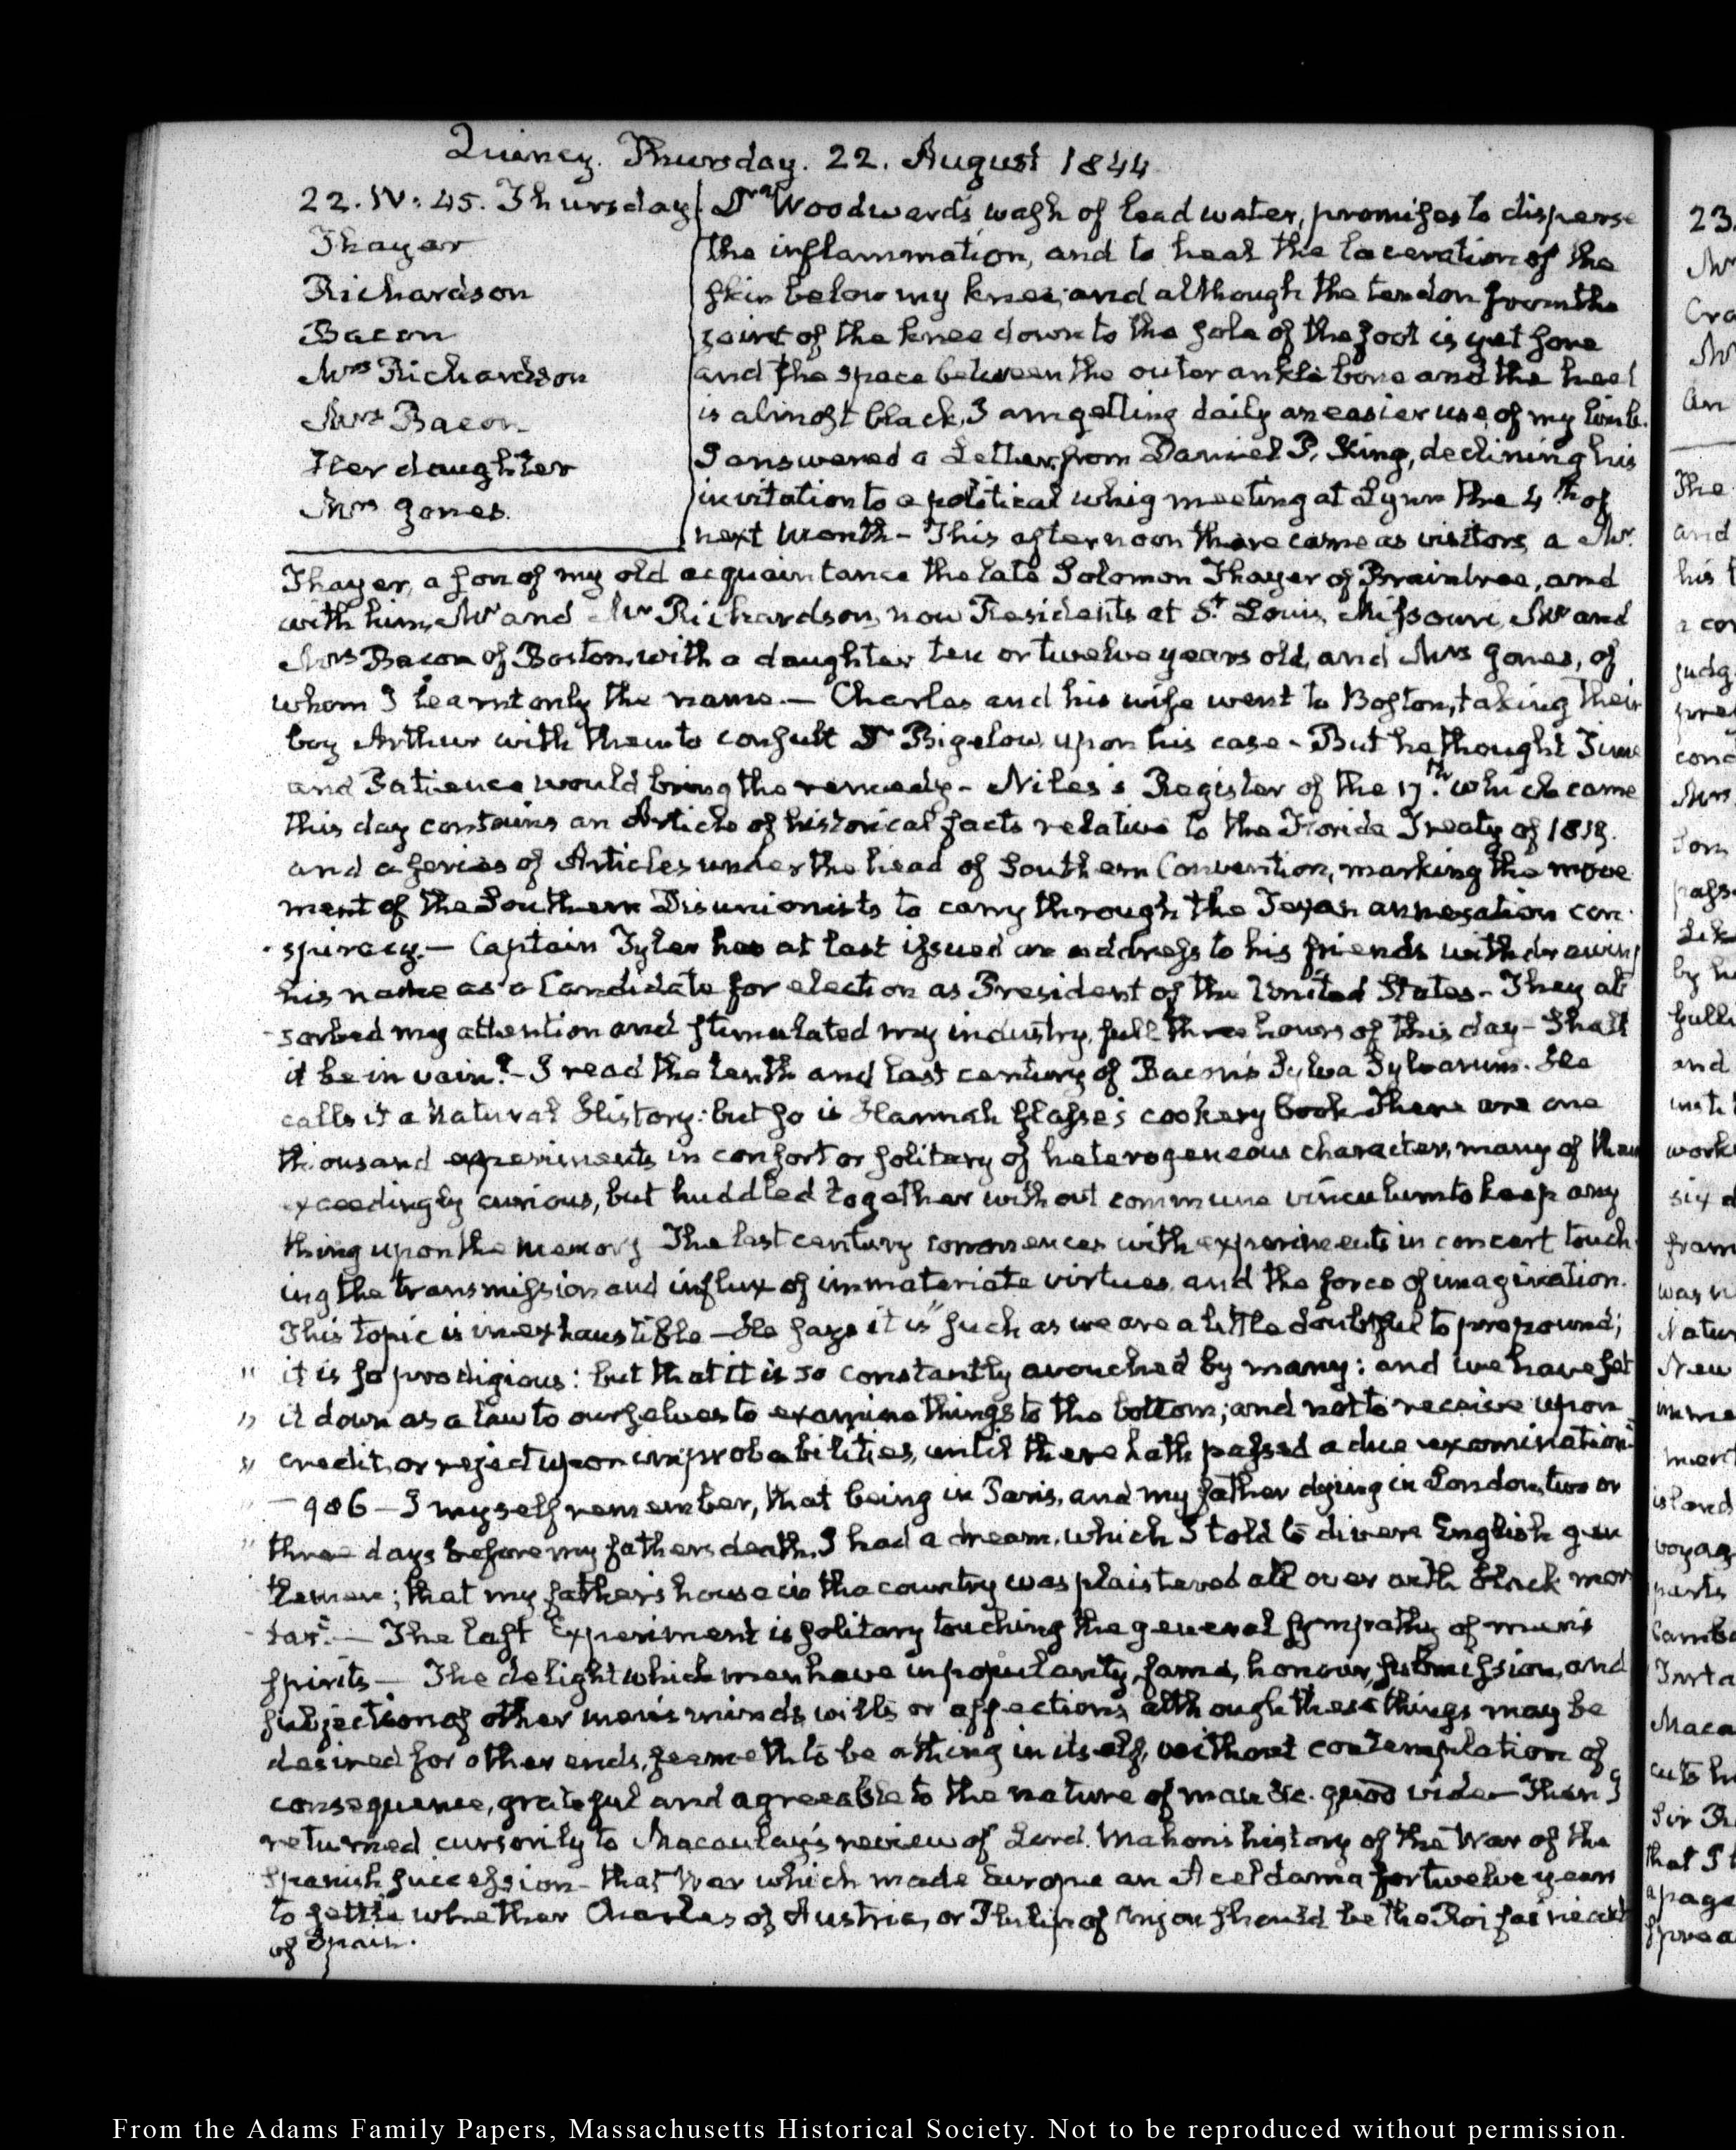 Quincy. Thursday. 22. August 1844
22. IV: 45. Thursday
Thayer
Richardson
Bacon
Mrs Richardson
Mrs Bacon
Her daughter
Mrs Jones.
Dr Woodward's wash of lead water, promises to disperse
the inflammation, and to heal the laceration of the
skin below my knee; and although the tendon from the
joint of the knee down to the sole of the foot is yet sore
and the space between the outer ankle bone and the heel
is almost black, I am getting daily an easier use of my limb.
I answered a Letter from Daniel P. King, declining his
invitation to a political whig meeting at Lynn the 4th of
next Month - This afternoon there came as visitors a Mr.
Thayer, a son of my old acquaintance the late Solomon Thayer of Braintree, and
with him, Mr and Mrs Richardson, now Residents at St. Louis, Missouri, Mr and
Mrs Bacon of Boston, with a daughter ten or twelve years old, and Mrs Jones, of
whom I learnt only the name. — Charles and his wife went to Boston, taking their
boy Arthur with them to consult Dr Bigelow, upon his case - But he thought Time
and Patience would bring the remedy - Niles's Register of the 17th. which came
this day contains an Article of historical facts relative to the Florida Treaty of 1819.
and a series of Articles under the head of Southern Convention, marking the move
ment of the Southern Disunionists to carry through the Texan annexation con-
-spiracy. — Captain Tyler has at last issued an address to his friends withdrawing
his name as a Candidate for election as President of the United States - They ab
-sorbed my attention and stimulated my industry, full three hours of this day - Shall
it be in vain? - I read the tenth and last century of Bacon's Sylva Sylvarum. He
calls it a Natural History: but so is Hannah Glasse's cookery book There are one
thousand experiments in consort or solitary of heterogeneous character, many of them
exceedingly curious, but huddled together without commune vinculum to keep any
thing upon the memory The last century commences with experiments in concert touch
ing the transmission and influx of immateriate virtues, and the force of imagination.
This topic is inexhaustible — He says it is "such as we are a little doubtful to propound;
" it is so prodigious: but that it is so constantly avouched by many: and we have set
" it down as a law to ourselves to examine things to the bottom; and not to receive upon
" credit, or reject upon improbabilities, until there hath passed a due examination"
" — 986 — I myself remember, that being in Paris, and my father dying in London, two or
" three days before my fathers death, I had a dream, which I told to divers English gen
" tlemen; that my father's house in the country was plaistered all over with black mor
- tar." — The last Experiment is solitary touching the general sympathy of men's
spirits — The delight which men have in popularity, fame, honour, submission, and
subjection of other men's minds, wills or affections, although these things may be
desired for other ends, seemeth to be a thing in itself, without contemplation of
consequence, grateful and agreeable to the nature of man &c. quod vide — Then I
returned cursorily to Macaulay's review of Lord Mahon's history of the War of the
Spanish Succession - that War which made Europe an Aceldama for twelve years
to settle whether Charles of Austria, or Philip of Anjou should be the Roi faineant
of Spain.
23.
Mr
Cra
An
The
and
his
a co
judg
pre
conc
Mrs
and
work
six
fram
was
Natur
New
ment
island
voyag
parts
Maca
Sir
that I
a page
sprea
From the Adams Family Papers, Massachusetts Historical Society. Not to be reproduced without permission.